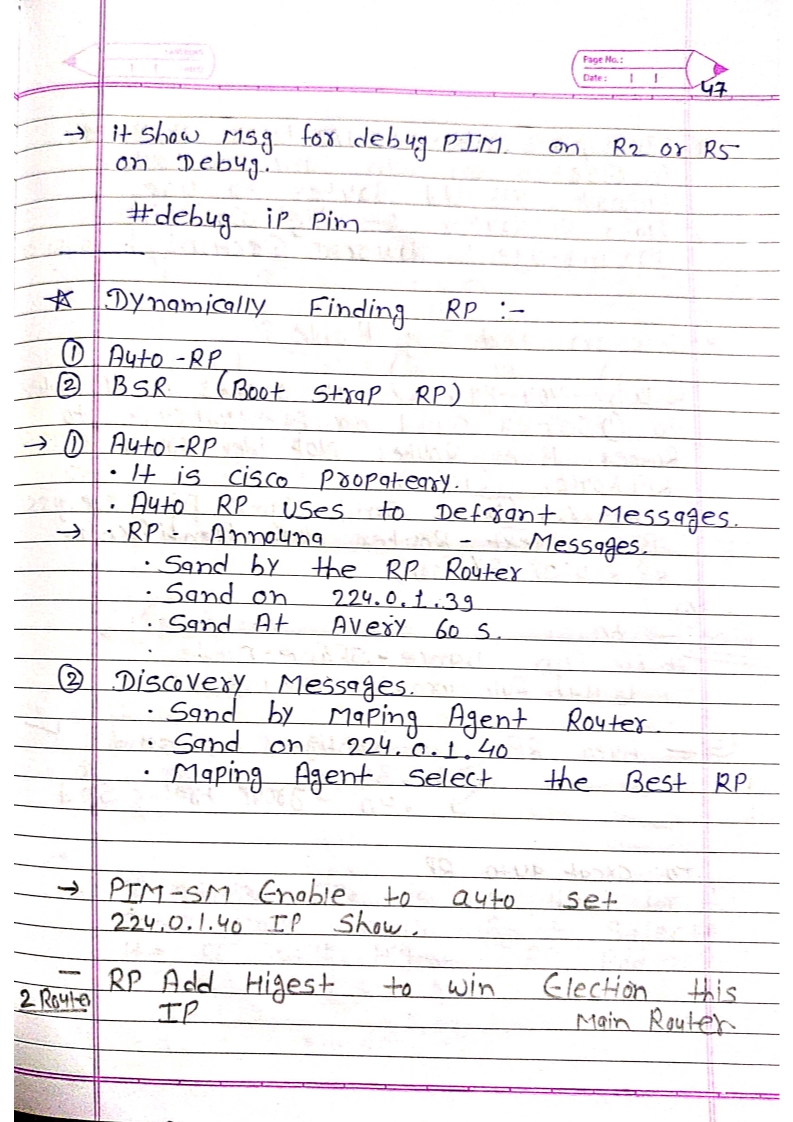 Page No.:
Date:
47
→ it show Msg for debug PIM. on R2 or R5
on Debug.
#debug ip Pim
☆ Dynamically Finding RP :-
① Auto -RP
② BSR (Boot Strap RP)
→ ① Auto-RP
• It is cisco Propateary.
• Auto RP uses to Defrant Messages.
→ • RP - Announa - Messages.
• Sand by the RP Router
• Sand on 224.0.1.39
• Sand At Avery 60 s.
② Discovery Messages.
• Sand by Maping Agent Router.
• Sand on 224.0.1.40
• Maping Agent Select the Best RP
→ PIM-SM Enable to auto set
224.0.1.40 IP Show.
— RP Add Higest to win Election this
2 Router IP Main Router